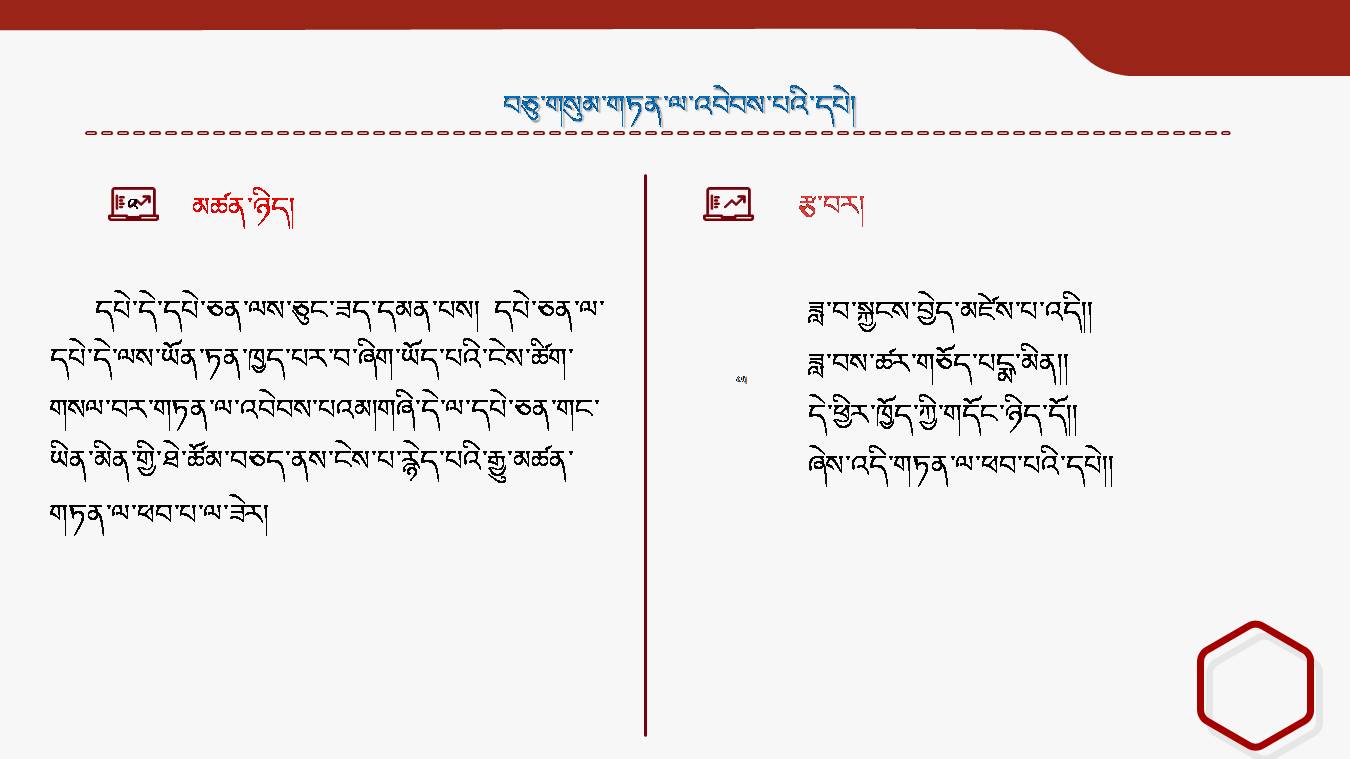 བཅུ་གསུམ་གཏན་ལ་འབེབས་པའི་དཔེ།
མཚན་ཉིད།
དཔེ་དེ་དཔེ་ཅན་ལས་ཅུང་ཟད་དམན་པས། དཔེ་ཅན་ལ་
དཔེ་དེ་ལས་ཡོན་ཏན་ཁྱད་པར་བ་ཞིག་ཡོད་པའི་ངེས་ཚིག་
གསལ་བར་གཏན་ལ་འབེབས་པའམ།གཞི་དེ་ལ་དཔེ་ཅན་གང་
ཡིན་མིན་གྱི་ཐེ་ཚོམ་བཅད་ནས་ངེས་པ་རྙེད་པའི་རྒྱུ་མཚན་
གཏན་ལ་ཕབ་པ་ལ་ཟེར།
རྩ་བར།
ཟླ་བ་སྐྱེངས་བྱེད་མཛེས་པ་འདི།།
ཟླ་བས་ཚར་གཅོད་པདྨ་མིན།།
དེ་ཕྱིར་ཁྱོད་ཀྱི་གདོང་ཉིད་དོ།།
ཞེས་འདི་གཏན་ལ་ཕབ་པའི་དཔེ།།